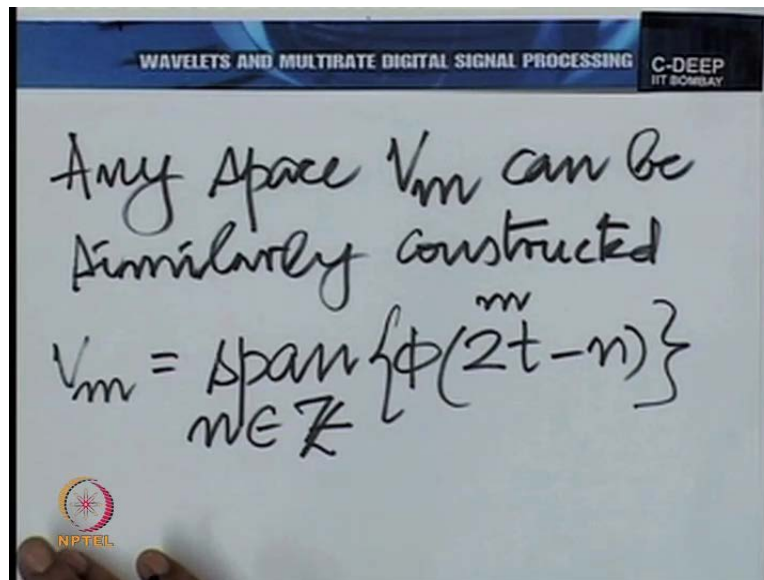 WAVELETS AND MULTIRATE DIGITAL SIGNAL PROCESSING
C-DEEP
IIT BOMBAY
Any space V_m can be
similarly constructed
V_m = span_{n∈ℤ} {φ(2^m t - n)}
NPTEL